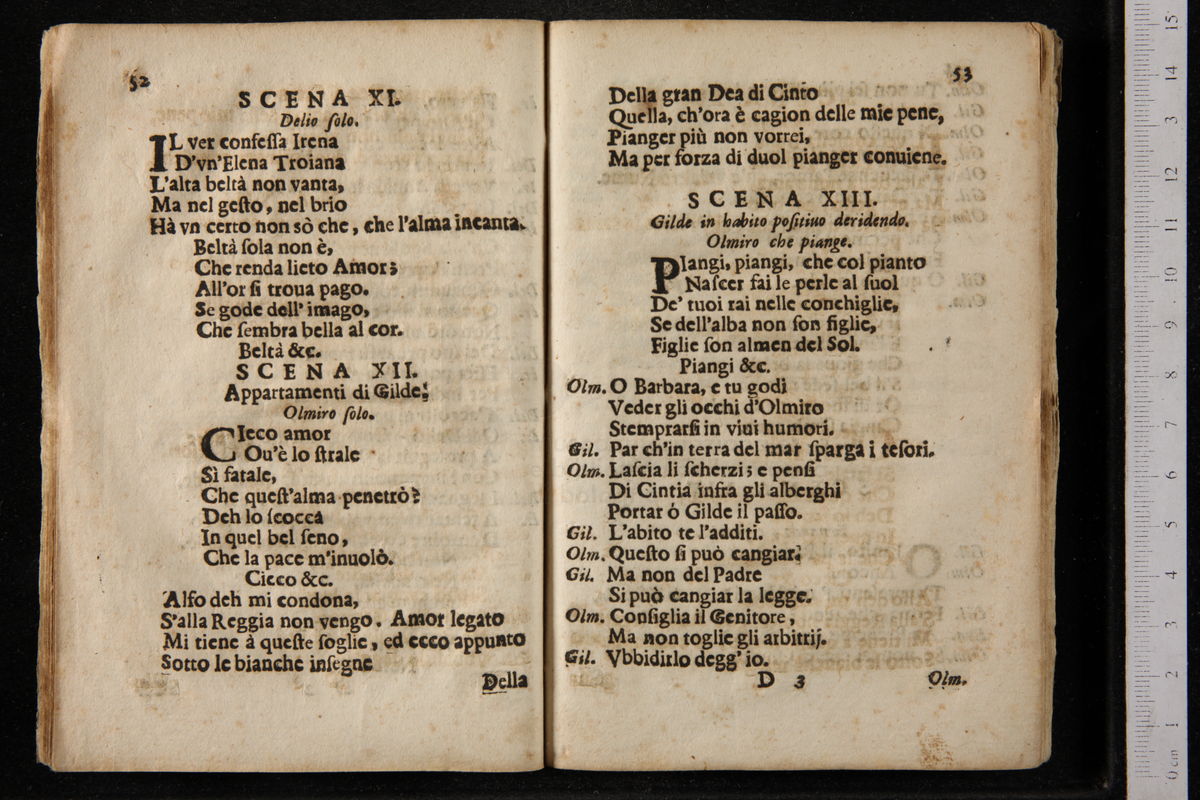 52
SCENA XI.
Delio ſolo.
IL ver confeſſa Irena
D'vn'Elena Troiana
L'alta beltà non vanta,
Ma nel geſto, nel brio
Hà vn certo non sò che, che l'alma incanta.
Beltà ſola non è,
Che renda lieto Amor;
All'or ſi troua pago.
Se gode dell' imago,
Che ſembra bella al cor.
Beltà &c.
SCENA XII.
Appartamenti di Gilde.
Olmiro ſolo.
CIeco amor
Ou'è lo ſtrale
Sì fatale,
Che queſt'alma penetrò?
Deh lo ſcocca
In quel bel ſeno,
Che la pace m'inuolò.
Cieco &c.
Alfo deh mi condona,
S'alla Reggia non vengo. Amor legato
Mi tiene à queſte ſoglie, ed ecco appunto
Sotto le bianche inſegne
Della
53
Della gran Dea di Cinto
Quella, ch'ora è cagion delle mie pene,
Pianger più non vorrei,
Ma per forza di duol pianger conuiene.
SCENA XIII.
Gilde in habito poſitiuo deridendo.
Olmiro che piange.
PIangi, piangi, che col pianto
Naſcer fai le perle al ſuol
De' tuoi rai nelle conchiglie,
Se dell'alba non ſon figlie,
Figlie ſon almen del Sol.
Piangi &c.
Olm. O Barbara, e tu godi
Veder gli occhi d'Olmiro
Stemprarſi in viui humori.
Gil. Par ch'in terra del mar ſparga i teſori.
Olm. Laſcia li ſcherzi; e penſi
Di Cintia infra gli alberghi
Portar ò Gilde il paſſo.
Gil. L'abito te l'additi.
Olm. Queſto ſi può cangiar.
Gil. Ma non del Padre
Si può cangiar la legge.
Olm. Conſiglia il Genitore,
Ma non toglie gli arbitrij.
Gil. Vbbidirlo degg' io.
D 3
Olm.
0 cm 1 2 3 4 5 6 7 8 9 10 11 12 3 14 15